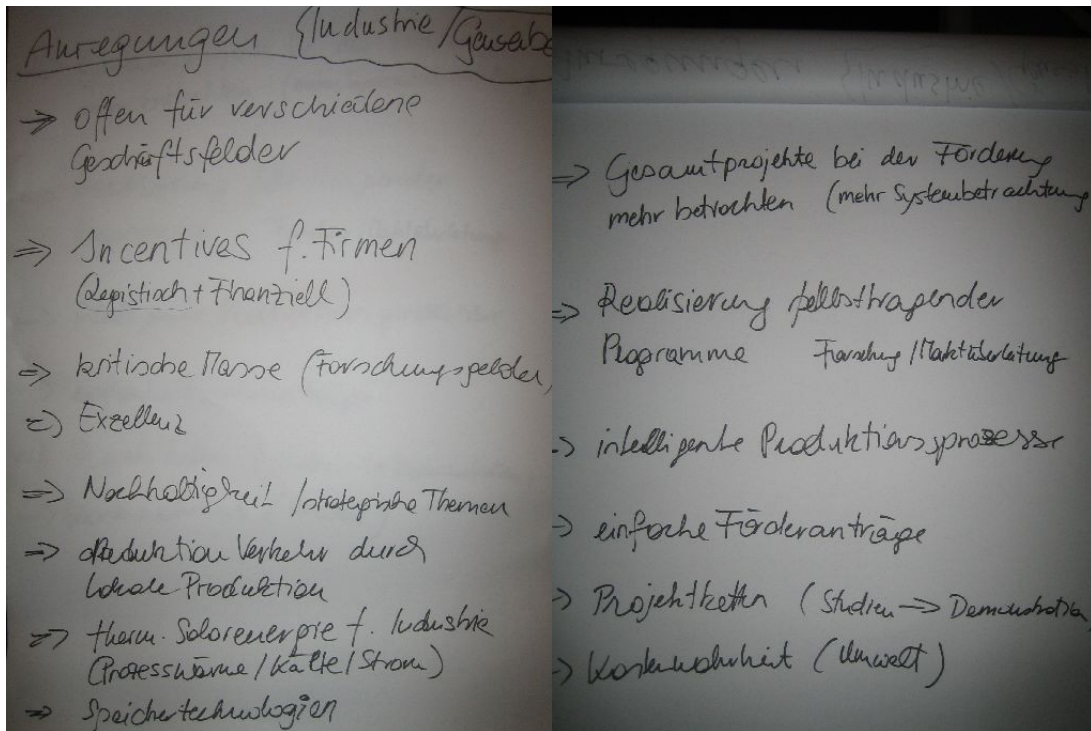 Anregungen {Industrie/Gewerbe
→ offen für verschiedene
Geschäftsfelder
⇒ Incentives f. Firmen
(Legistisch + Finanziell)
⇒ kritische Masse (Forschungsgelder)
⇒ Exzellenz
⇒ Nachhaltigkeit / strategische Themen
⇒ Reduktion Verkehr durch
lokale Produktion
⇒ therm. Solarenergie f. Industrie
(Prozesswärme / Kälte / Strom)
⇒ Speichertechnologien
⇒ Gesamtprojekte bei der Förderung
mehr betrachten (mehr Systembetrachtung
⇒ Realisierung selbsttragender
Programme Forschung / Marktüberleitung
⇒ intelligente Produktionsprozesse
→ einfache Förderanträge
→ Projektketten (Studien → Demonstration
→ Kostenwahrheit (Umwelt)